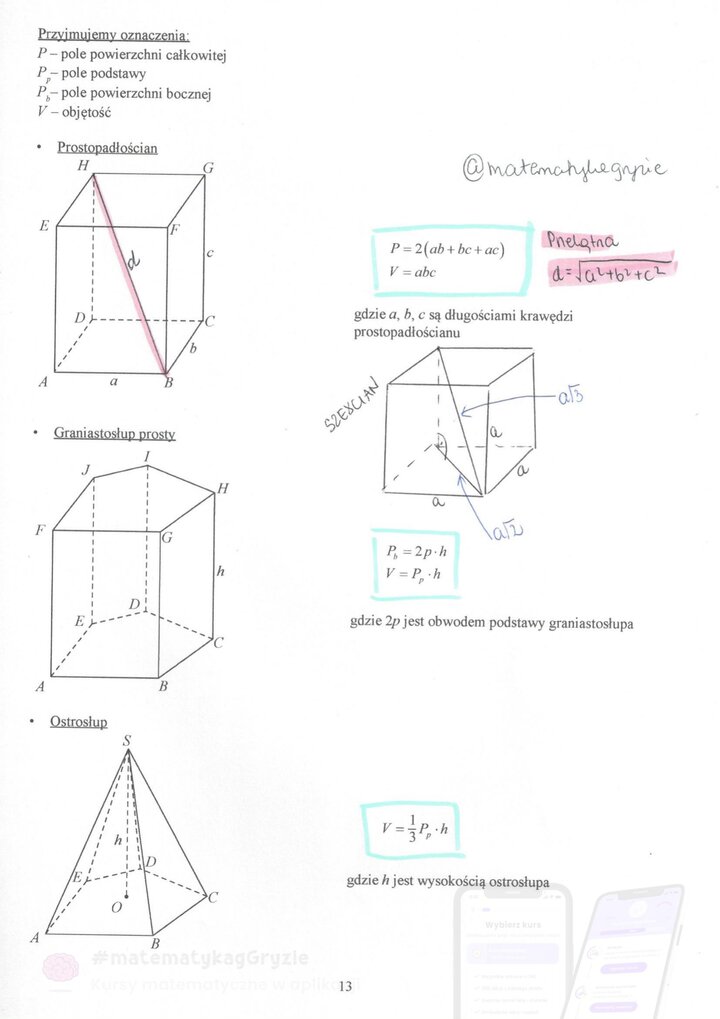 Przyjmujemy oznaczenia:
P – pole powierzchni całkowitej
P_p – pole podstawy
P_b – pole powierzchni bocznej
V – objętość
• Prostopadłościan
H
G
E
F
d
c
D
C
b
A
a
B
@matematykagryzie
P = 2(ab + bc + ac)
V = abc
Przekątna
d = √a²+b²+c²
gdzie a, b, c są długościami krawędzi
prostopadłościanu
SZEŚCIAN
a√3
a
a
a
a√2
• Graniastosłup prosty
J
I
H
F
G
h
E
D
C
A
B
P_b = 2p · h
V = P_p · h
gdzie 2p jest obwodem podstawy graniastosłupa
• Ostrosłup
S
h
E
D
O
C
A
B
V = 1/3 P_p · h
gdzie h jest wysokością ostrosłupa
Wybierz kurs
#matematykagGryzie
Kursy matematyczne w aplik
13